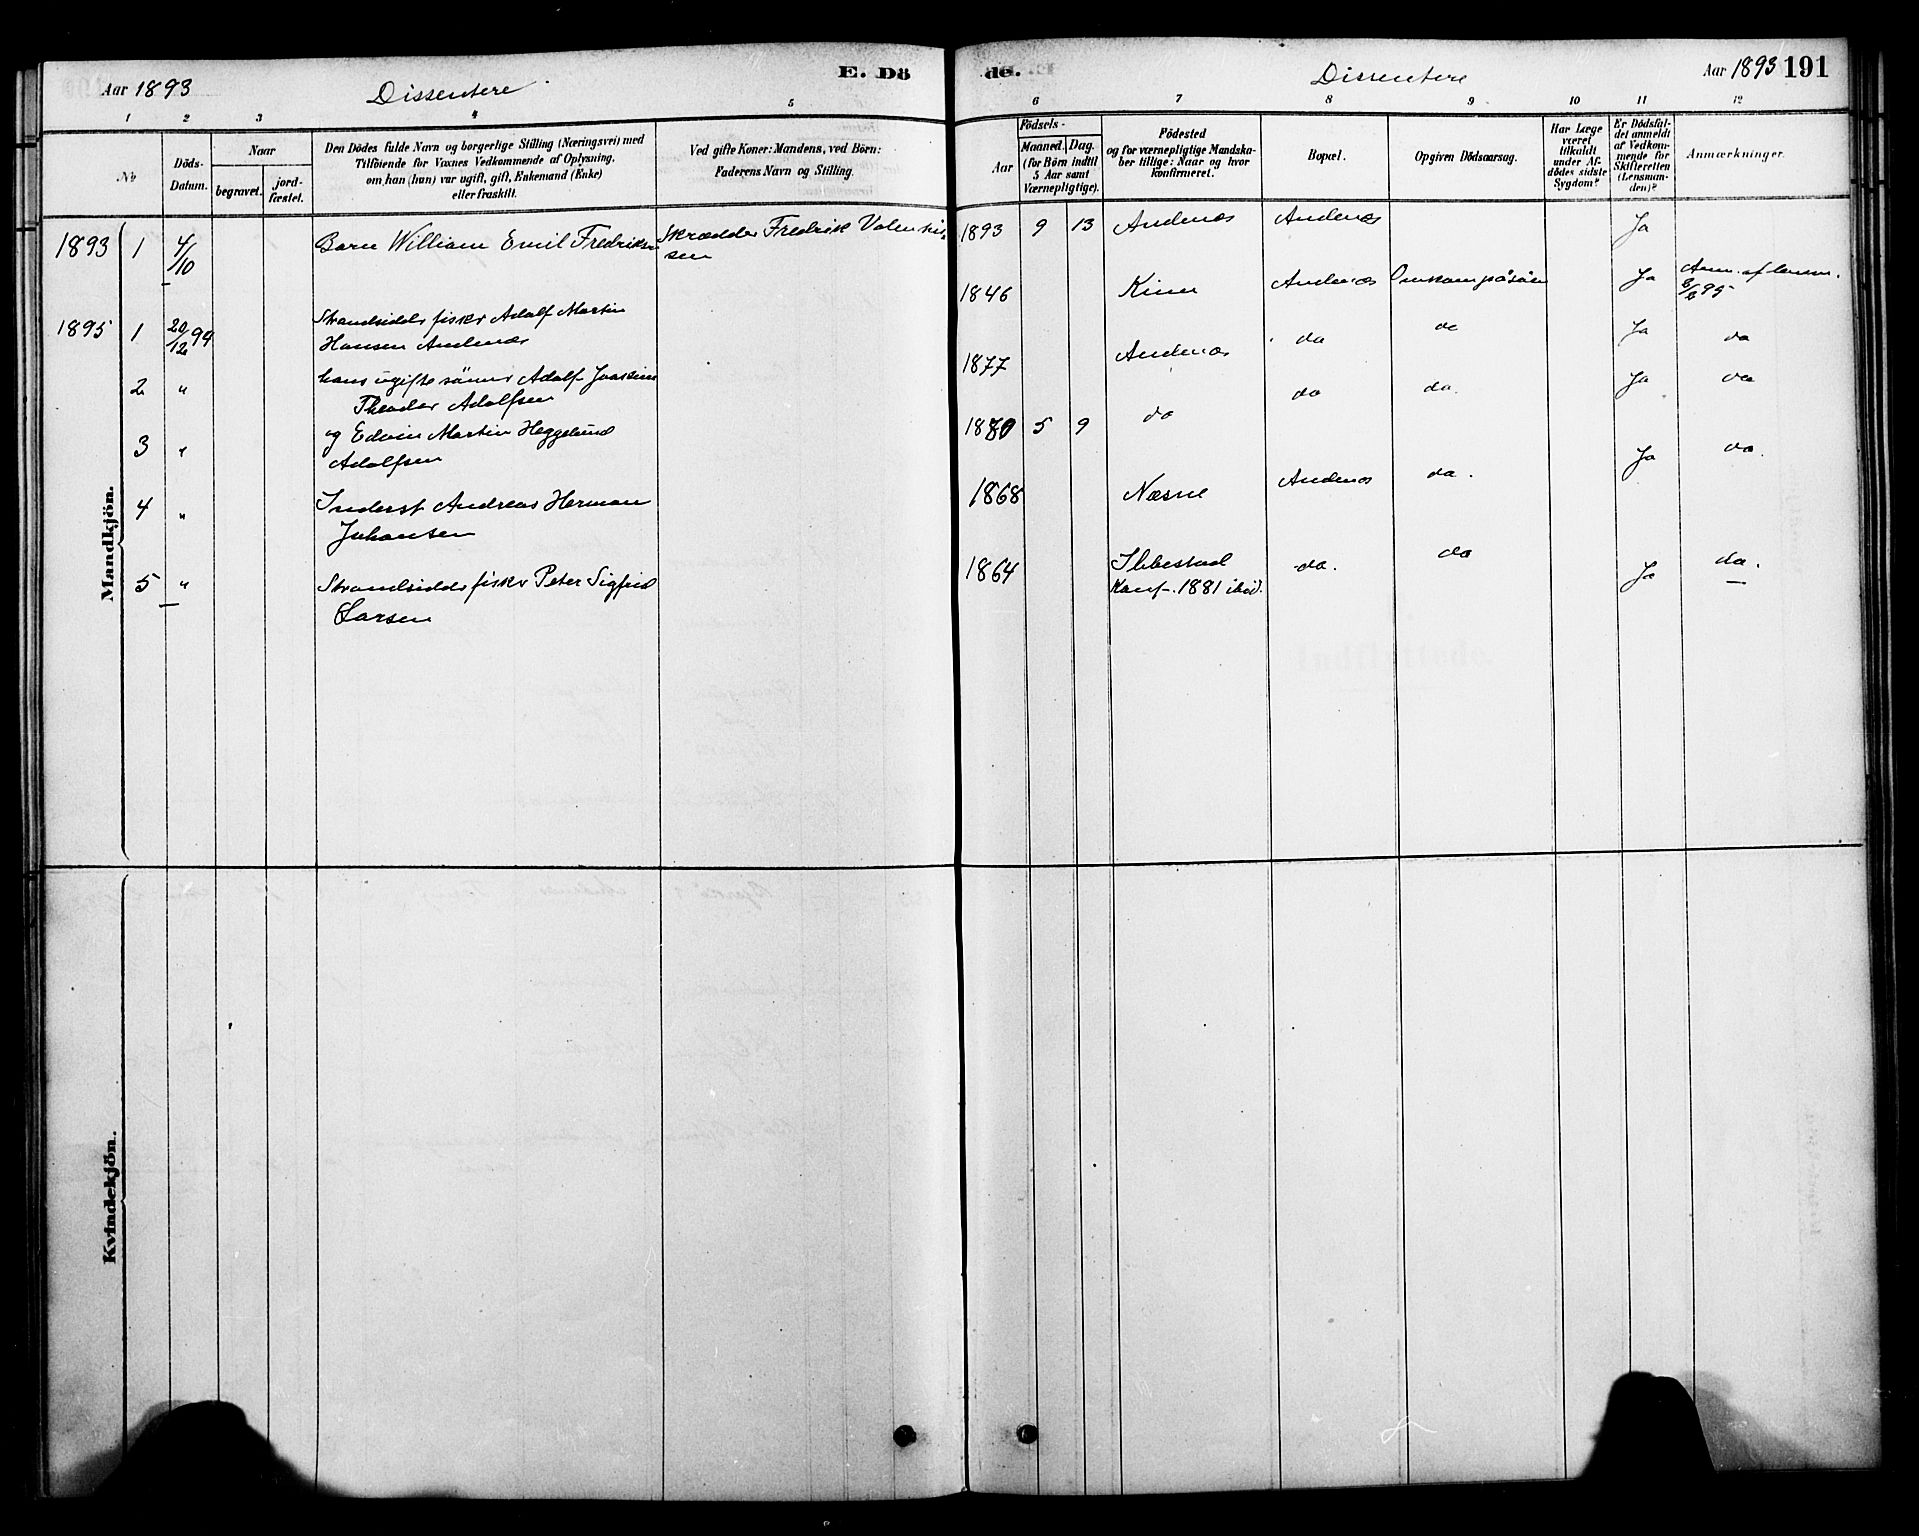 Aar 1893 Dissentere E. Dö
de. Dissentere Aar 1893 191
1 2 3 4 5
6 7 8 9 10 11 12
№
Döds-
Datum.
Naar
begravet.
jord-
fæstet.
Den Dödes fulde Navn og borgerlige Stilling (Næringsvei) med
Tilföiende for Voxnes Vedkommende af Oplysning,
om han (hun) var ugift, gift, Enkemand (Enke)
eller fraskilt.
Ved gifte Koner: Mandens, ved Börn:
Faderens Navn og Stilling.
Födsels-
Aar
Maaned. Dag.
(for Börn indtil
5 Aar samt
Værnepligtige).
Födested
og for værnepligtige Mandska-
ber tillige: Naar og hvor
konfirmeret.
Bopæl.
Opgiven Dödsaarsag.
Har Læge
været
tilkaldt
under Af-
dödes sidste
Sygdom?
Er Dödsfal-
det anmeldt
af Vedkom-
mende for
Skifteretten
(Lensman-
den)?
Anmærkninger.
Mandkjön.
1893 1 4/10 Barn William Emil Fredriksen Skrædder Fredrik Valentin-
sen
1893 9 13 Andenæs Andenæs Ja
1895 1 20/12 94 Strandsidder fisker Adolf Martin
Hansen Andenæs
1846 Andenæs Omkom på søen Ja Anm. af lensm.
2 " hans ugifte sønner Adolf Joackim
Theodor Adolfsen
1877 Andenæs do do Ja do
3 " og Edvin Martin Heggelund
Adolfsen
1880 5 9 do do do. Ja do
4 " Inderst Andreas Herman
Johansen
1868 Næsne Andenæs do. Ja do.
5 " Strandsidder fisker Peter Sigfrid
Larsen
1864 Ibbestad do. do Ja do.
Konf. 1881 ibid.
Kvindekjön.